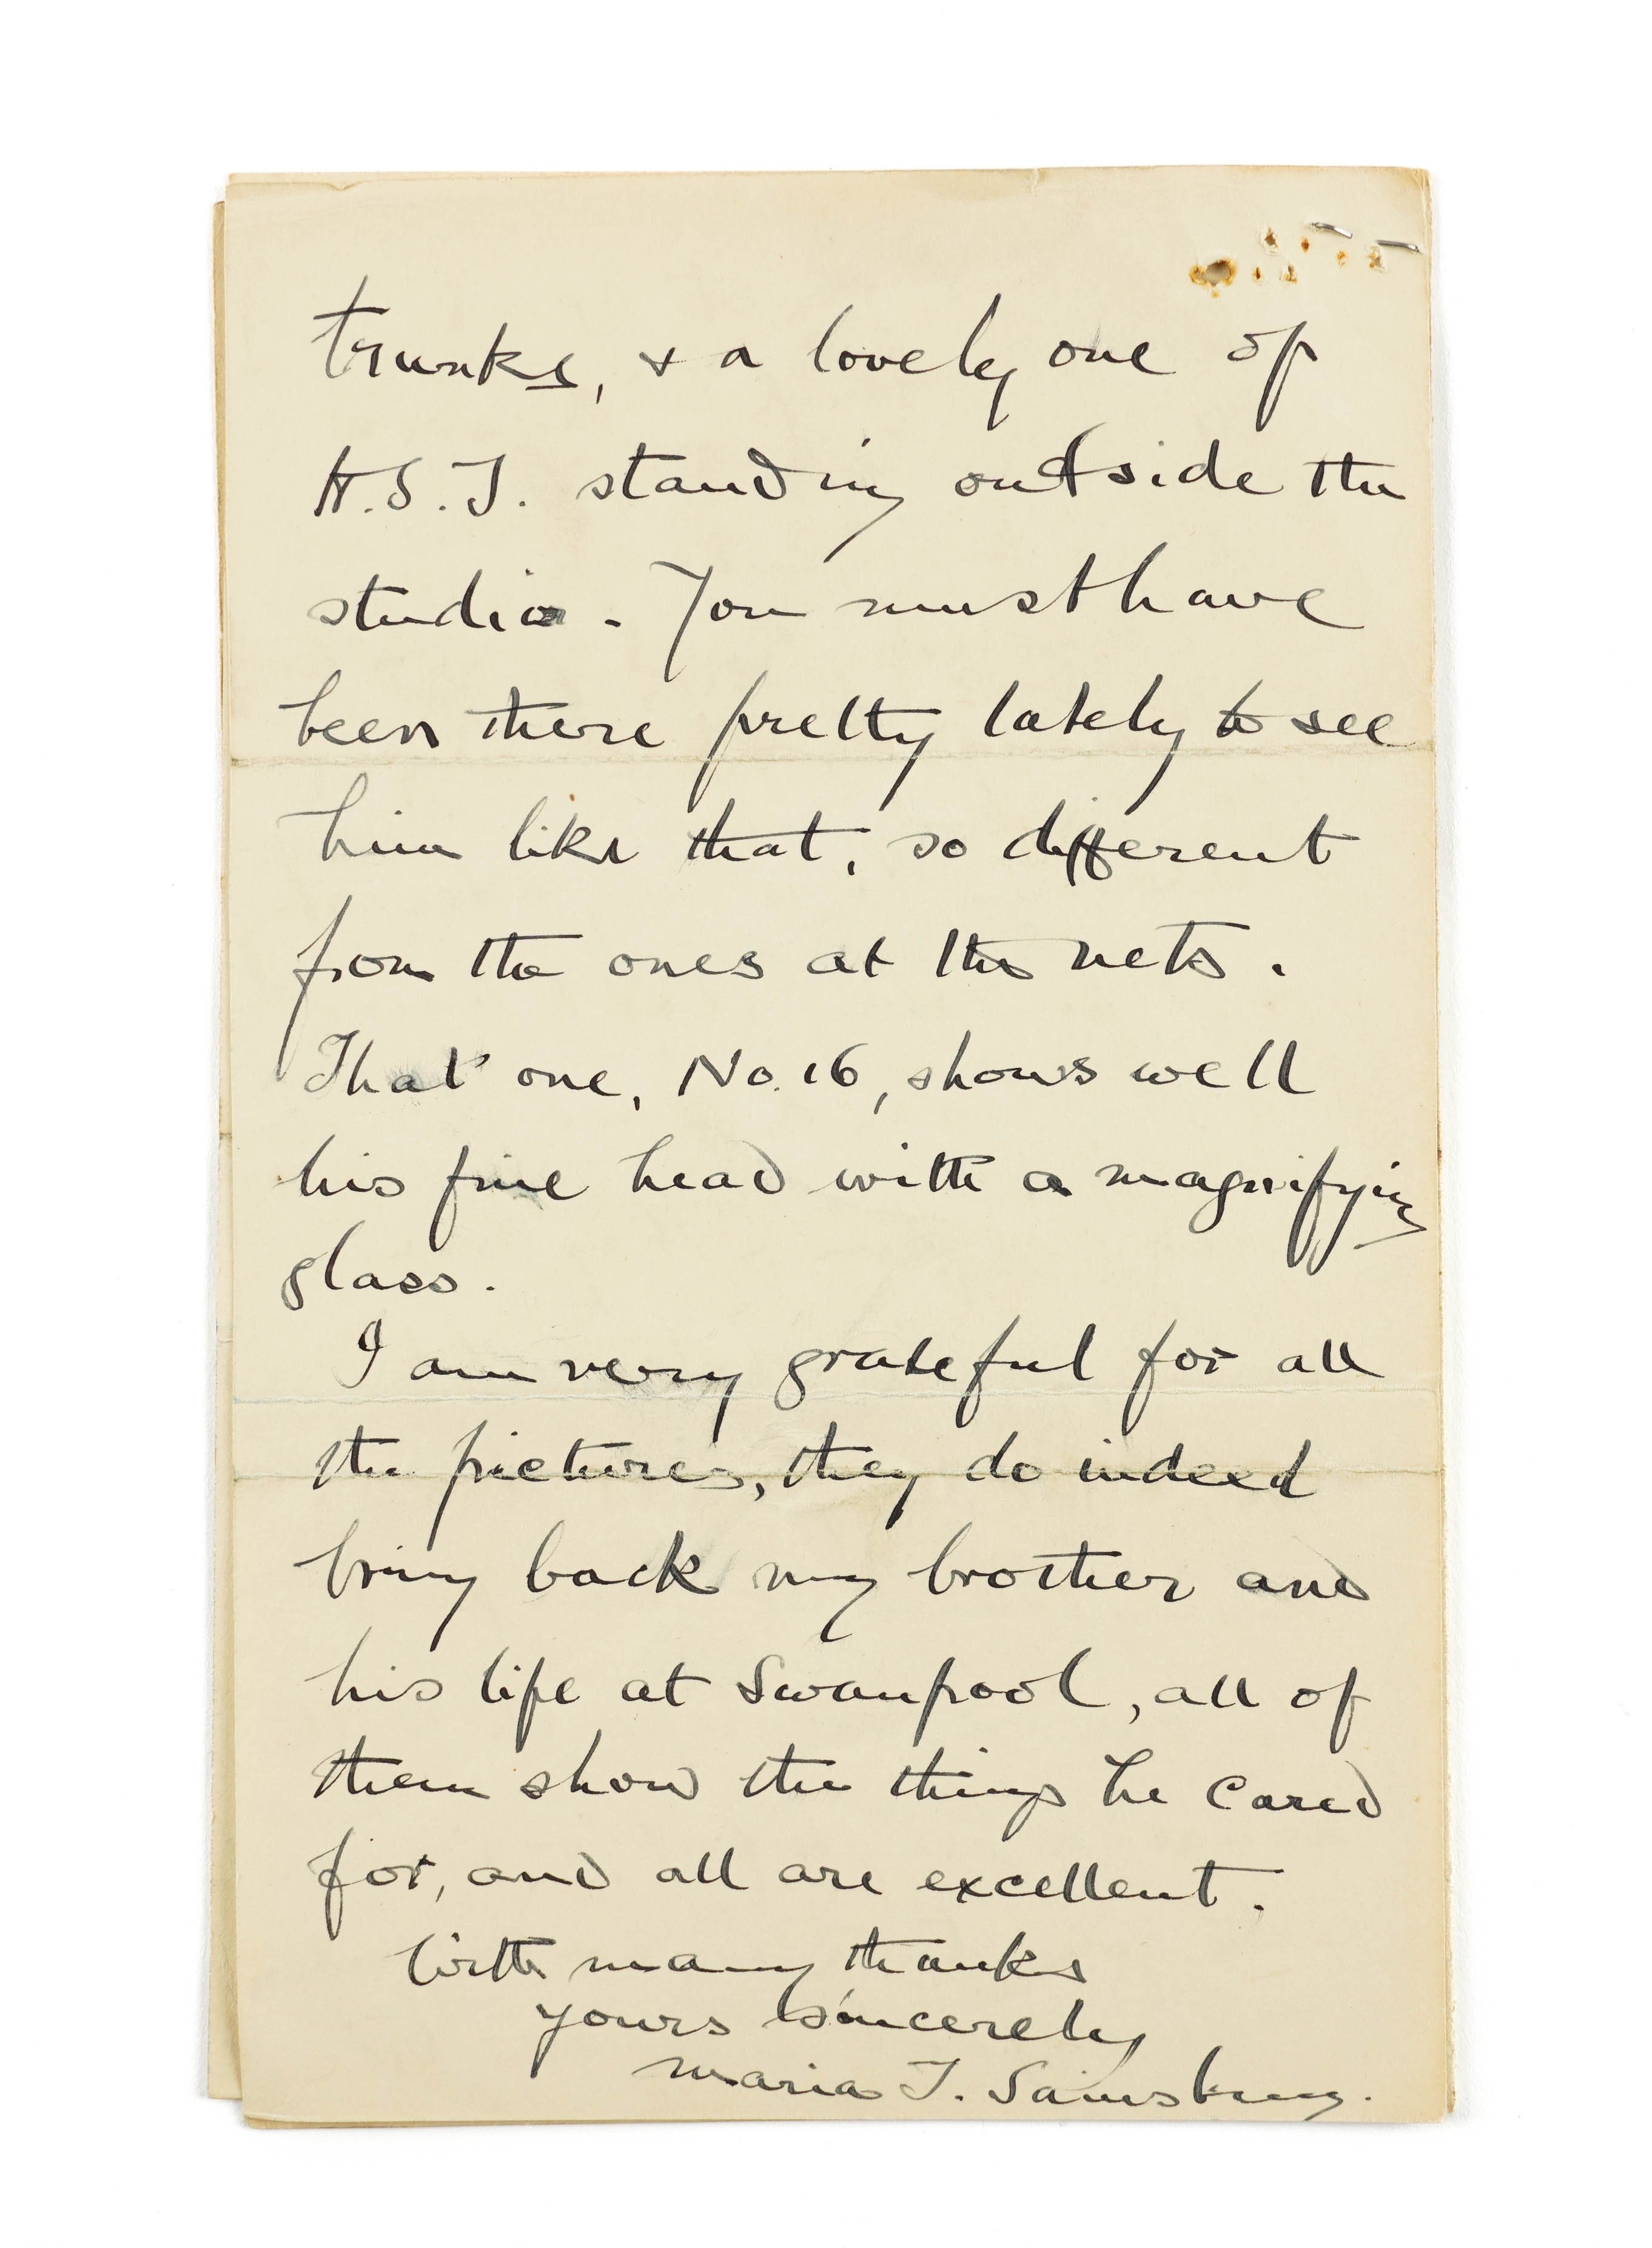 trunks, & a lovely one of
H.S.T. standing outside the
studio. You must have
been there pretty lately to see
him like that, so different
from the ones at the nets.
That one, No. 16, shows well
his fine head with a magnifying
glass.
I am very grateful for all
the pictures, they do indeed
bring back my brother and
his life at Swanpool, all of
them show the things he cared
for, and all are excellent.
With many thanks
yours sincerely
Maria T. Sainsbury.